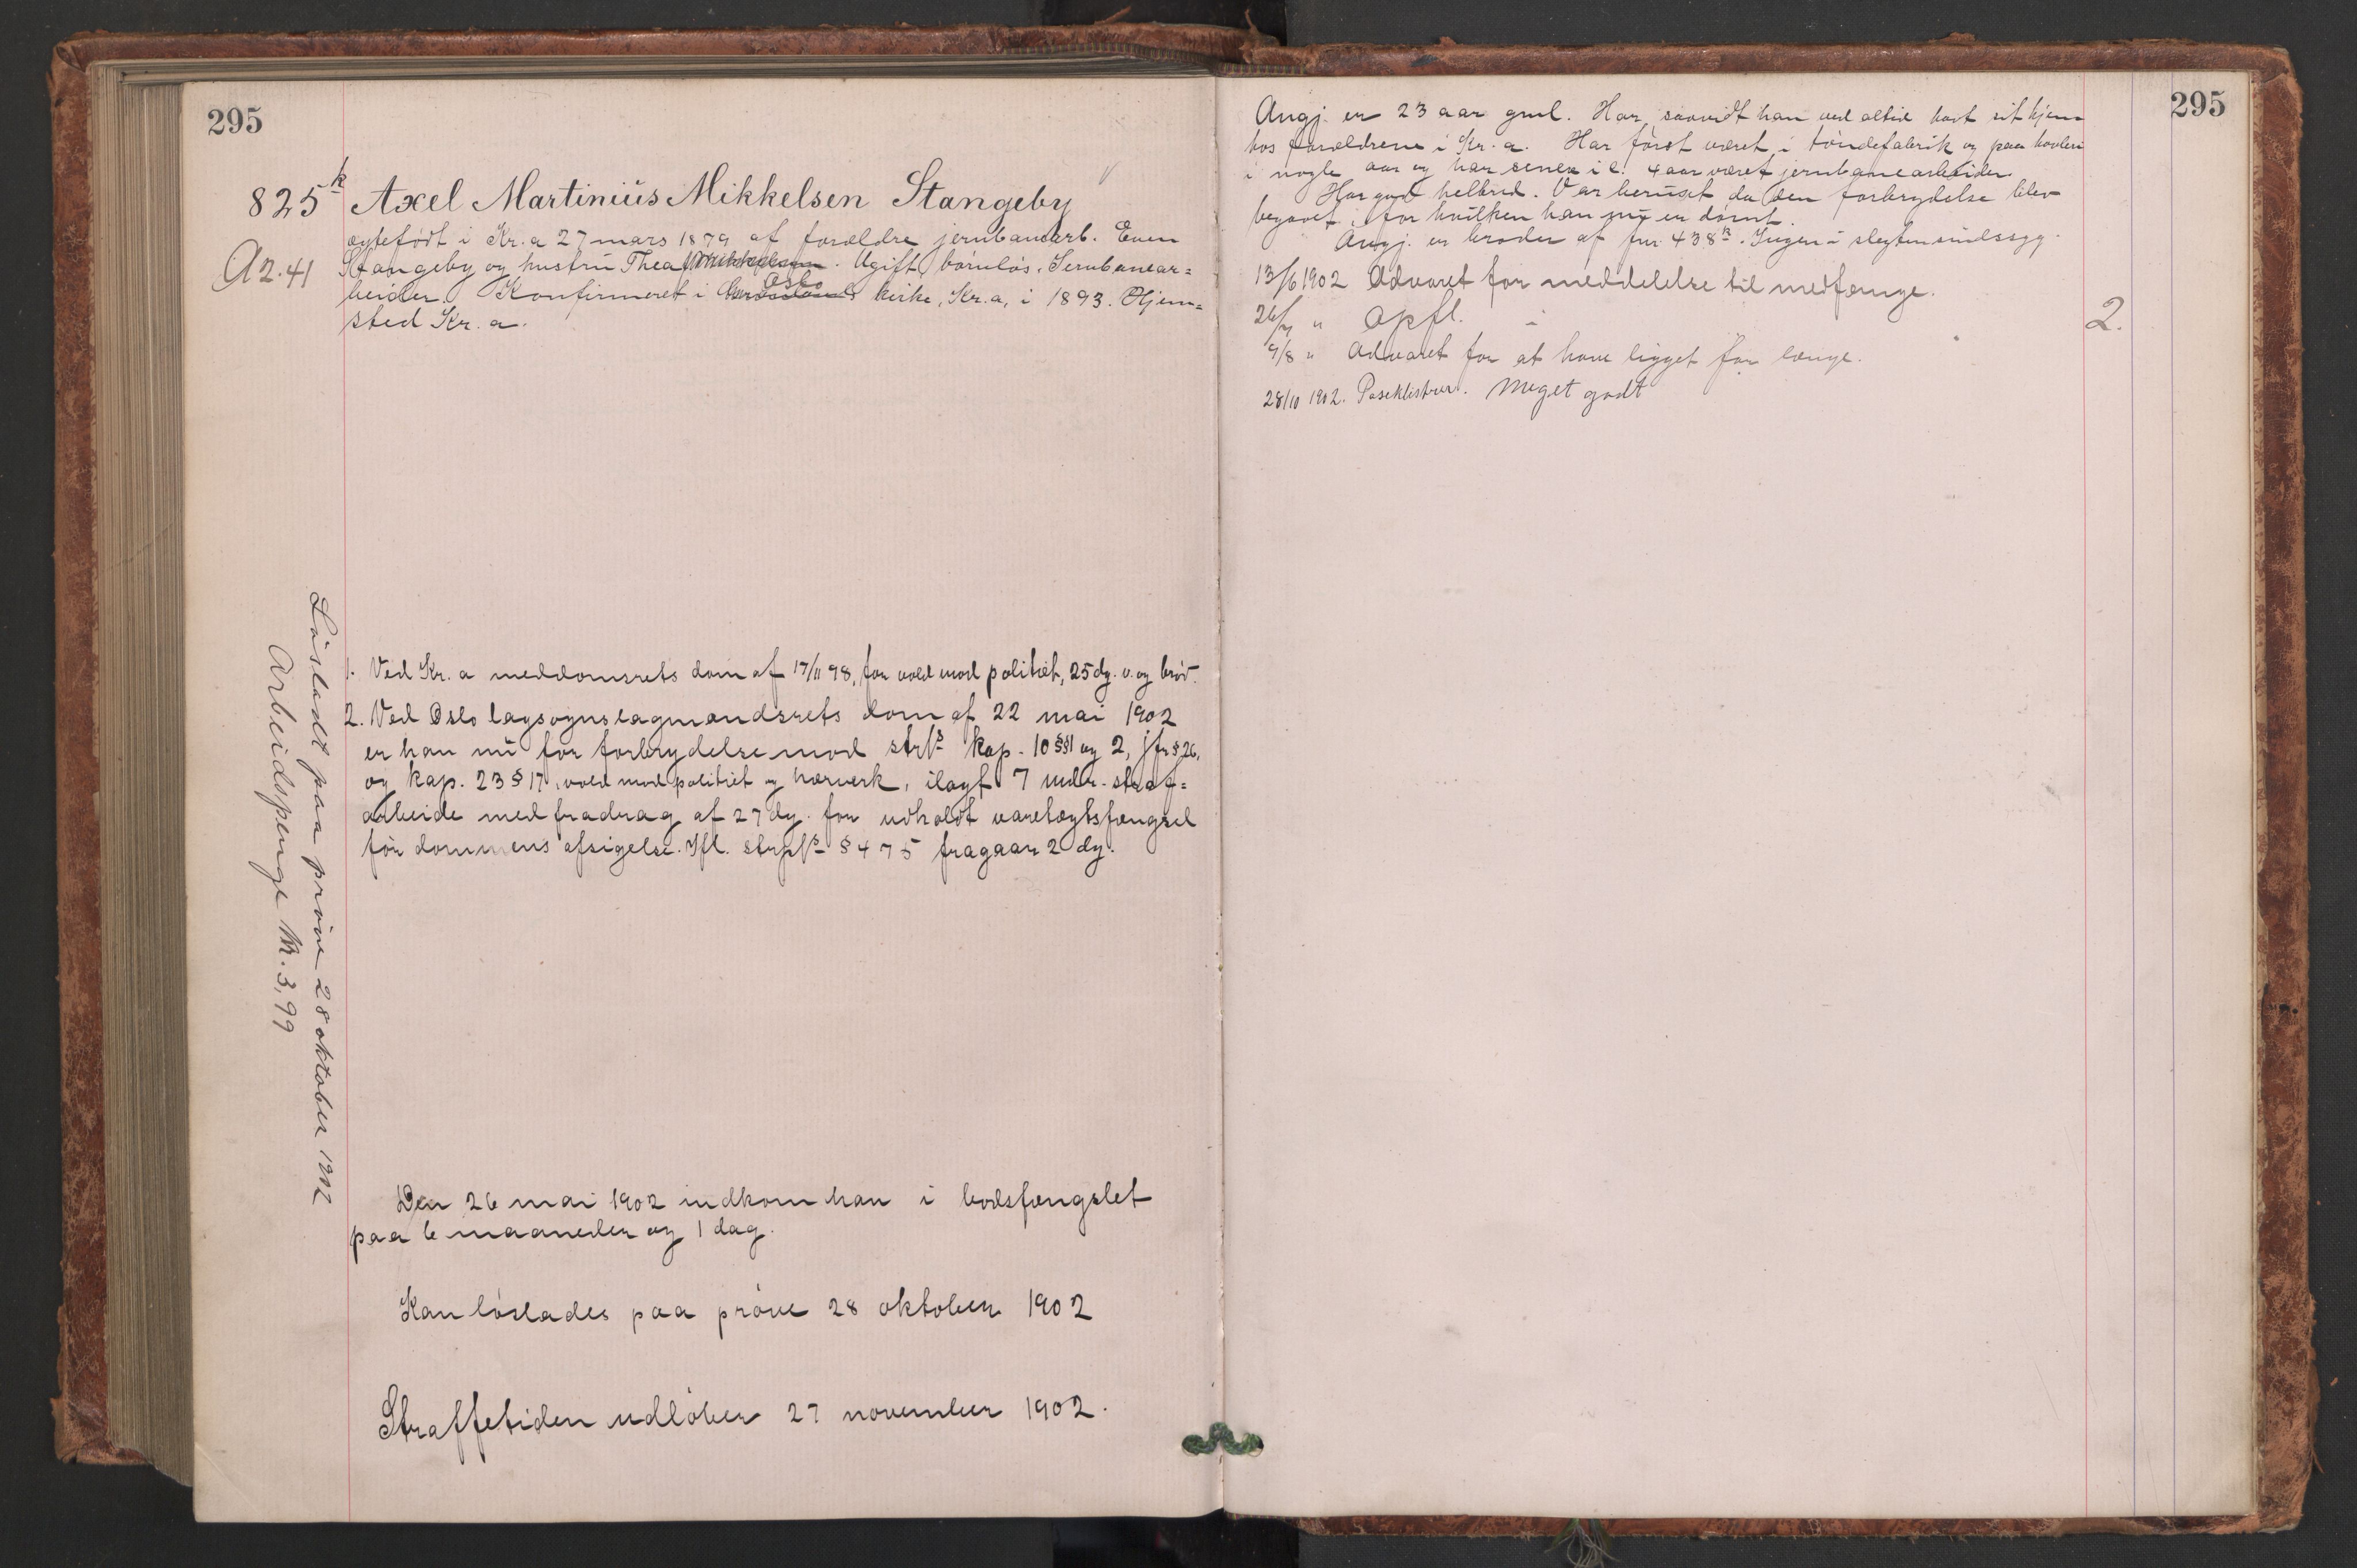 295
825k Axel Martinius Mikkelsen Stangeby
A2.41
ægtefödt i Kr.a 27 mars 1879 af forældre jernbanearb. Even
Stangeby og hustru Thea Mikkelsen. Ugift, börnlös. Jernbanear=
beider. Konfirmeret i Oslo kirke, Kr.a, i 1893. Hjem=
sted Kr.a.
1. Ved Kr.a meddomsrets dom af 17/11 98, for vold mod politiet, 25 dg. v. og bröd.
2. Ved Oslo lagsognslagmandsrets dom af 22 mai 1902
er han nu for forbrydelse mod strfs kap. 10 §§1 og 2, jfr § 26,
og kap. 23 § 17, vold mod politiet og hærverk, ilagt 7 mdr. straf=
arbeide med fradrag af 27 dg. for udholdt varetægtsfængsel
för dommens afsigelse. Ifl. strpls § 475 fragaar 2 dg.
Den 26 mai 1902 indkom han i bodsfængslet
paa 6 maaneder og 1 dag.
Kan löslades paa pröve 28 oktober 1902
Straffetiden udlöber 27 november 1902.
Lösladt paa pröve 28 oktober 1902
Arbeidspenge Kr. 3,99
295
Angj. er 23 aar gml. Har, saavidt han ved altid havt sit hjem
hos forældrene i Kr.a. Har först været i töndefabrik og paa høvleri
i nogle aar og har senere i c. 4 aar været jernbanearbeider.
Har god helbred. Var beruset da den forbrydelse blev
begaaet, for hvilken han nu er dömt.
Angj. er broder af fnr. 438k. Ingen i slegten sindssyg.
13/6 1902 Advaret for meddelelse til medfange.
26/7 " Opfl.
9/8 " Advaret for at have ligget for længe.
28/10 1902. Poseklistrer. Meget godt
2.